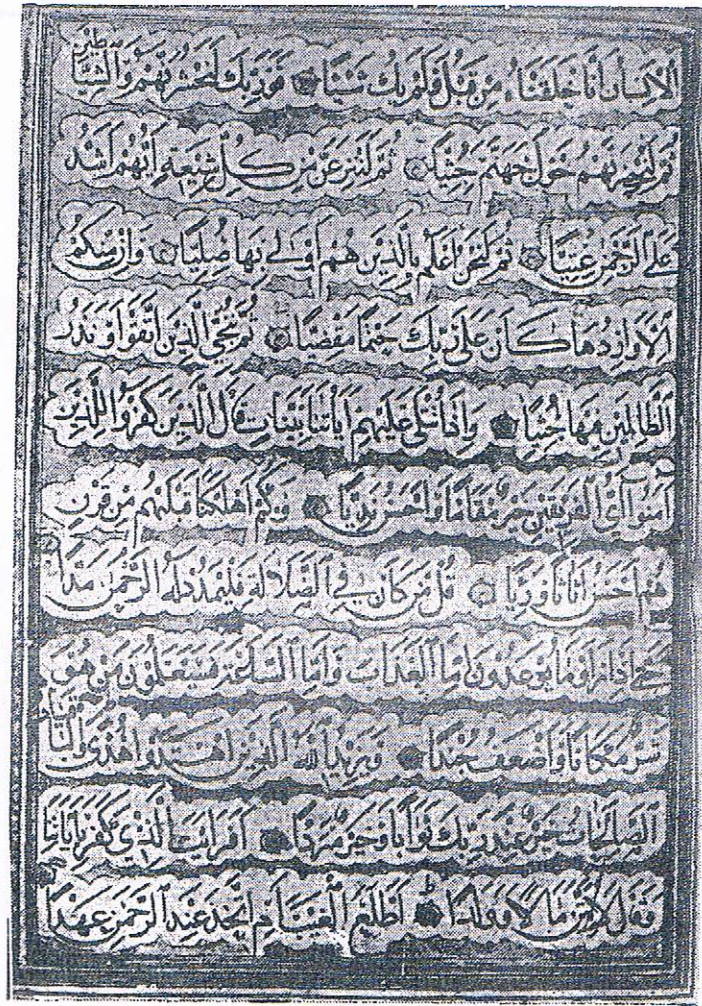 الاِنسانُ اَنّا خَلَقناهُ مِن قَبلُ وَلَم يَكُ شَيئًا فَوَرَبِّكَ لَنَحشُرَنَّهُم وَالشَّياطينَ
ثُمَّ لَنُحضِرَنَّهُم حَولَ جَهَنَّمَ جِثِيًّا ثُمَّ لَنَنزِعَنَّ مِن كُلِّ شيعَةٍ اَيُّهُم اَشَدُّ
عَلَى الرَّحمٰنِ عِتِيًّا ثُمَّ لَنَحنُ اَعلَمُ بِالَّذينَ هُم اَولى بِها صُلِيًّا وَاِن مِنكُم
اِلّا وارِدُها كانَ عَلى رَبِّكَ حَتمًا مَقضِيًّا ثُمَّ نُنَجِّى الَّذينَ اتَّقَوا وَنَذَرُ
الظّالِمينَ فيها جِثِيًّا وَاِذا تُتلى عَلَيهِم اٰياتُنا بَيِّناتٍ قالَ الَّذينَ كَفَروا لِلَّذينَ
اٰمَنوا اَىُّ الفَريقَينِ خَيرٌ مَقامًا وَاَحسَنُ نَدِيًّا وَكَم اَهلَكنا قَبلَهُم مِن قَرنٍ
هُم اَحسَنُ اَثاثًا وَرِءيًا قُل مَن كانَ فِى الضَّلالَةِ فَليَمدُد لَهُ الرَّحمٰنُ مَدًّا
حَتّى اِذا رَاَوا ما يوعَدونَ اِمَّا العَذابَ وَاِمَّا السّاعَةَ فَسَيَعلَمونَ مَن هُوَ
شَرٌّ مَكانًا وَاَضعَفُ جُندًا وَيَزيدُ اللهُ الَّذينَ اهتَدَوا هُدًى وَالباقِياتُ
الصّالِحاتُ خَيرٌ عِندَ رَبِّكَ ثَوابًا وَخَيرٌ مَرَدًّا اَفَرَاَيتَ الَّذى كَفَرَ بِاٰياتِنا
وَقالَ لَاُوتَيَنَّ مالًا وَوَلَدًا اَطَّلَعَ الغَيبَ اَمِ اتَّخَذَ عِندَ الرَّحمٰنِ عَهدًا